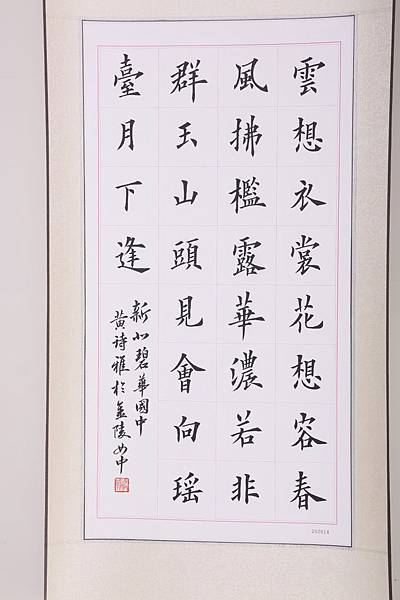 雲想衣裳花想容春
風拂檻露華濃若非
群玉山頭見會向瑶
臺月下逢
新北碧華國中
黄詩雅於金陵女中